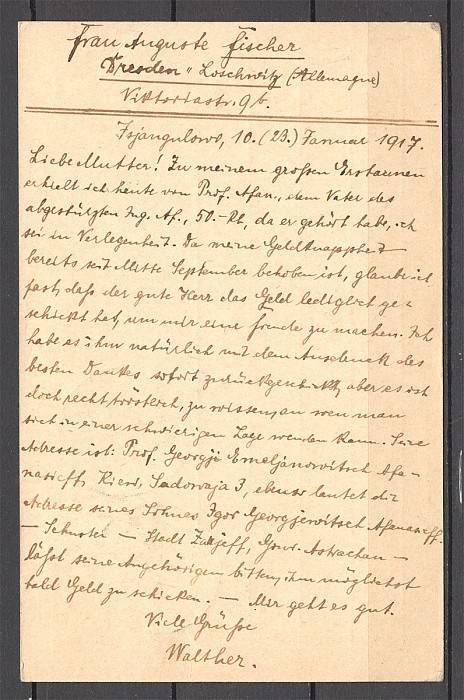 Frau Auguste Fischer
Dresden-Loschwitz (Allemagne)
Viktoriastr. 9b.
Isjangulowo, 10. (23.) Januar 1917.
Liebe Mutter! Zu meinem großen Erstaunen
erhielt ich heute von Prof. Afan., dem Vater des
abgestürzten Ing. Af., 50.- Rbl, da er gehört habe, ich
sei in Verlegenheit. Da meine Geldknappheit
bereits seit Mitte September behoben ist, glaube ich
fast, daß der gute Herr das Geld lediglich ge-
schickt hat, um mir eine Freude zu machen. Ich
habe es ihm natürlich mit dem Ausdruck des
besten Dankes sofort zurückgeschickt, aber es ist
doch recht tröstlich, zu wissen, an wen man
sich in einer schwierigen Lage wenden kann. Seine
Adresse ist: Prof. Georgji Emeljanowitsch Afa-
nasieff, Kiew, Sadowaja 3, ebenso lautet die
Adresse seines Sohnes Igor Georgjewitsch Afanasieff.
— Schuster — Stadt Zarjeff, Gouv. Astrachan —
läßt seine Angehörigen bitten, ihm möglichst
bald Geld zu schicken. — Mir geht es gut.
Viele Grüße
Walther.